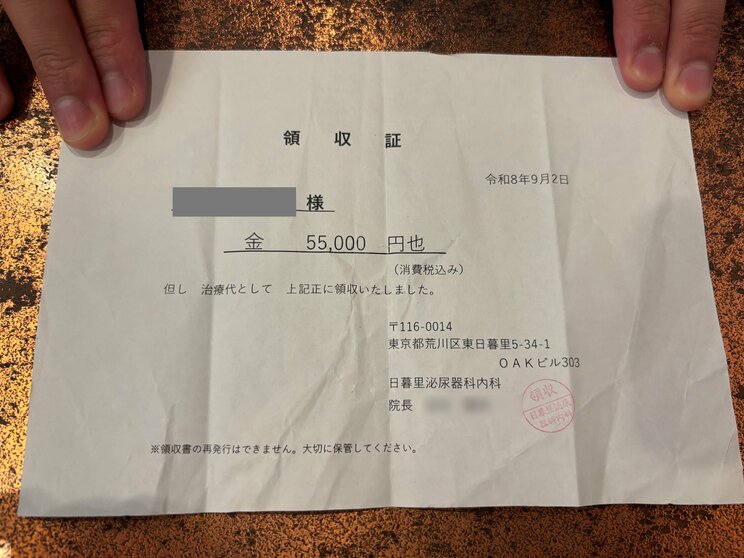 領収証
令和8年9月2日
様
金 55,000 円也
(消費税込み)
但し 治療代として 上記正に領収いたしました。
〒116-0014
東京都荒川区東日暮里5-34-1
OAKビル303
日暮里泌尿器科内科
院長
領収
日暮里泌尿
器科内科
※領収書の再発行はできません。大切に保管してください。